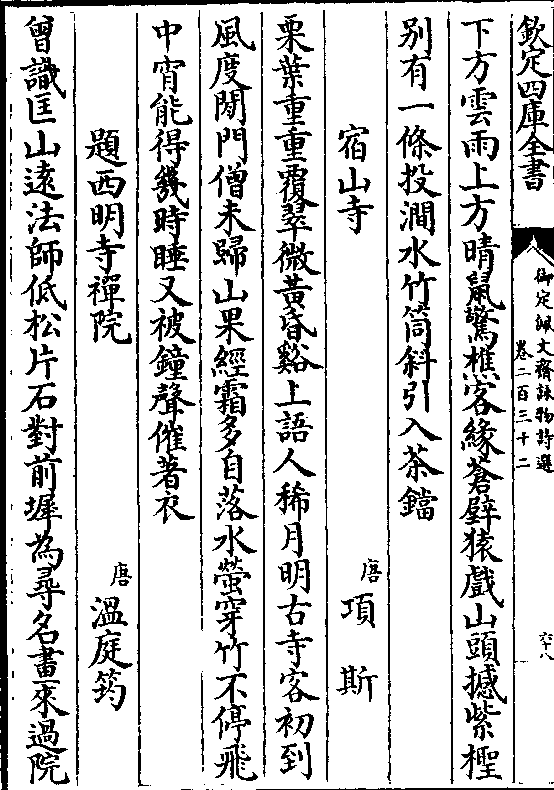 欽定四庫全書
御定佩文齋詠物詩選
卷二百三十二
六十八
下方雲雨上方晴鼠驚樵客緣蒼壁猿戲山頭撼紫檉
别有一條投澗水竹筒斜引入茶鐺
宿山寺
唐 項斯
栗葉重重覆翠微黃昏谿上語人稀月明古寺客初到
風度閑門僧未歸山果經霜多自落水螢穿竹不停飛
中宵能得幾時睡又被鐘聲催著衣
題西明寺禪院
唐 溫庭筠
曾識匡山遠法師低松片石對前墀為尋名畫來過院